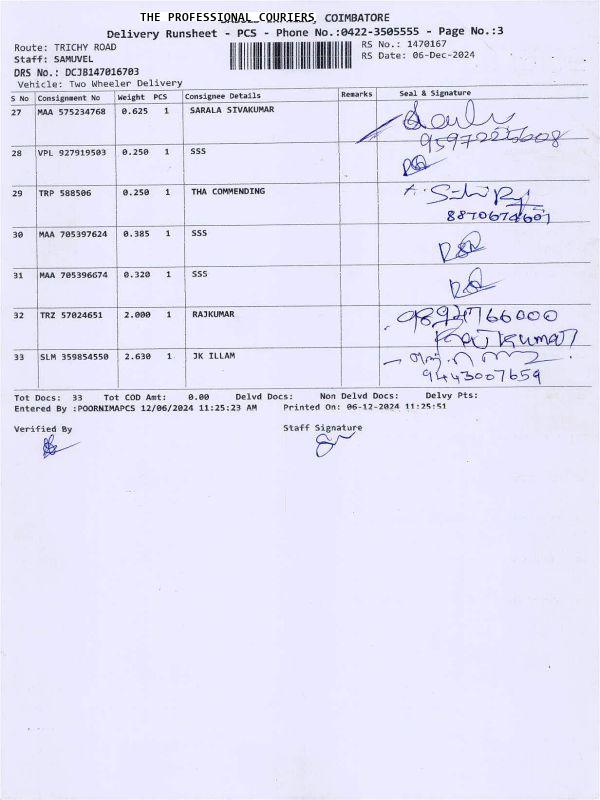 THE PROFESSIONAL COURIERS, COIMBATORE
Delivery Runsheet - PCS - Phone No.:0422-3505555 - Page No.:3
Route: TRICHY ROAD
RS No.: 1470167
Staff: SAMUVEL
RS Date: 06-Dec-2024
DRS No.: DCJB147016703
Vehicle: Two Wheeler Delivery
S No Consignment No Weight PCS Consignee Details Remarks Seal & Signature
27 MAA 575234768 0.625 1 SARALA SIVAKUMAR
28 VPL 927919503 0.250 1 SSS
29 TRP 588506 0.250 1 THA COMMENDING
8870674607
30 MAA 705397624 0.385 1 SSS
31 MAA 705396674 0.320 1 SSS
32 TRZ 57024651 2.000 1 RAJKUMAR
Rajkumar
33 SLM 359854550 2.630 1 JK ILLAM
9443007659
Tot Docs: 33 Tot COD Amt: 0.00 Delvd Docs: Non Delvd Docs: Delvy Pts:
Entered By :POORNIMAPCS 12/06/2024 11:25:23 AM Printed On: 06-12-2024 11:25:51
Verified By Staff Signature